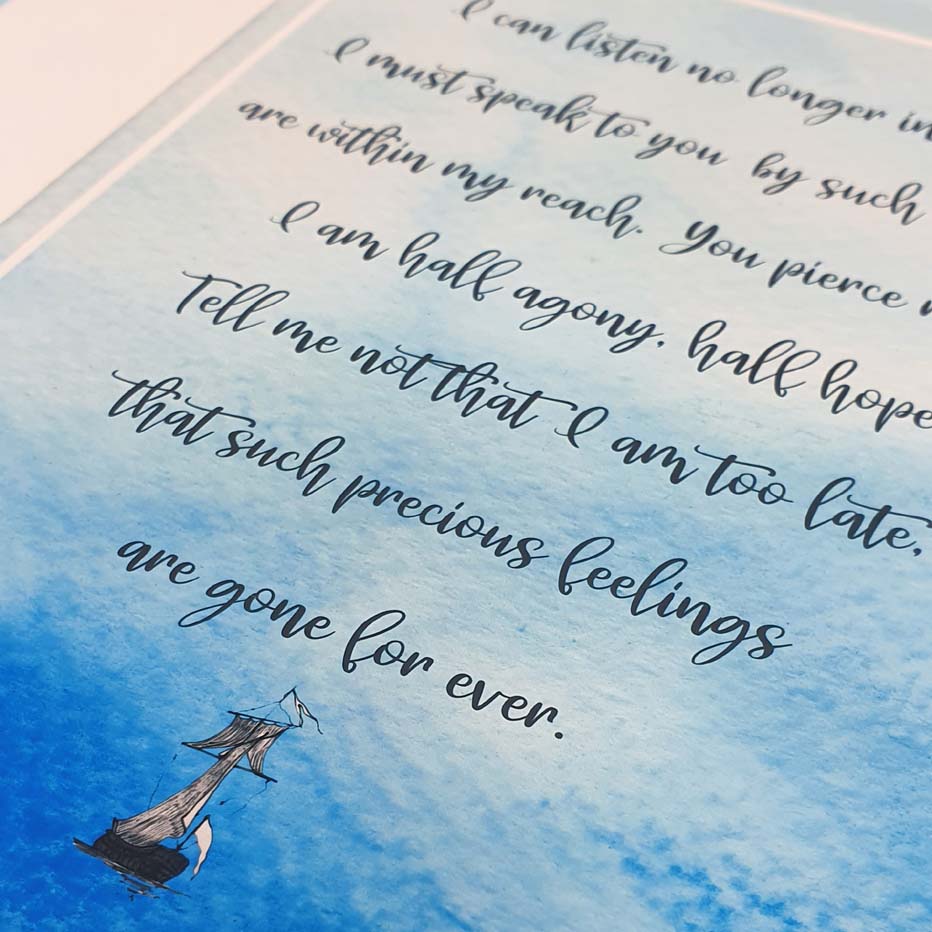 I can listen no longer in
I must speak to you by such
are within my reach. You pierce
I am half agony, half hope
Tell me not that I am too late,
that such precious feelings
are gone for ever.